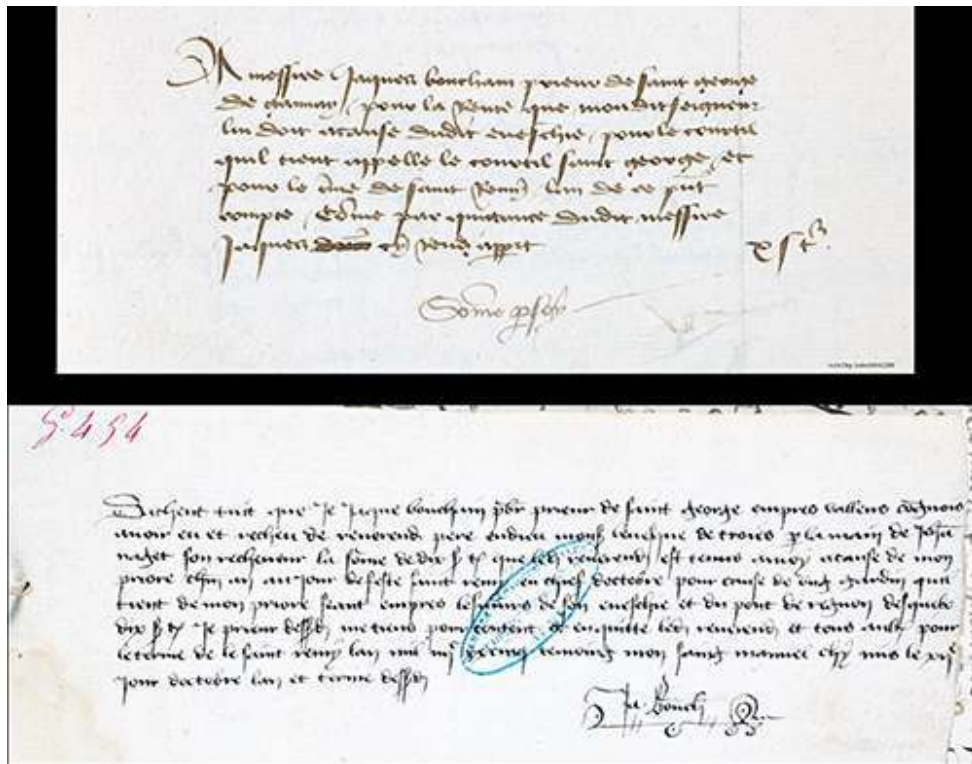 A messire Jaques bouchain prieur de saint george
de gannay, pour la rente que mondit seigneur
lui doit a cause dudit eveschie, pour le courtil
quil tient appelle le courtil saint george, et
pour le de saint Remy, lan de ce pnt
compte, Come par quittance dudit messire
Jaques cy rendu appert x s t
Some p
5° 454
Sachent tuit que Je Jaque bouchain pbr prieur de saint george empres vallens congnois
avoir eu et recheu de reverend pere en dieu mons levesque de troies p la main de Joh
naget son recheveur la some de dix s t que ledit reverend est tenus a moy a cause de mon
priore chun an au jour de feste saint remy en chief doctobre pour cause de ung gardin quil
tient de mon priore seant empres les murs de son eveschie et du pont de desquelx
dix s t Je prieur dessd me tiens pour content et en quitte led reverend et tous aultr pour
le terme de le saint remy lan mil iiij tesmoing mon saing manuel cy mis le xij
jour doctobre lan et terme dessd
Ja. bouch